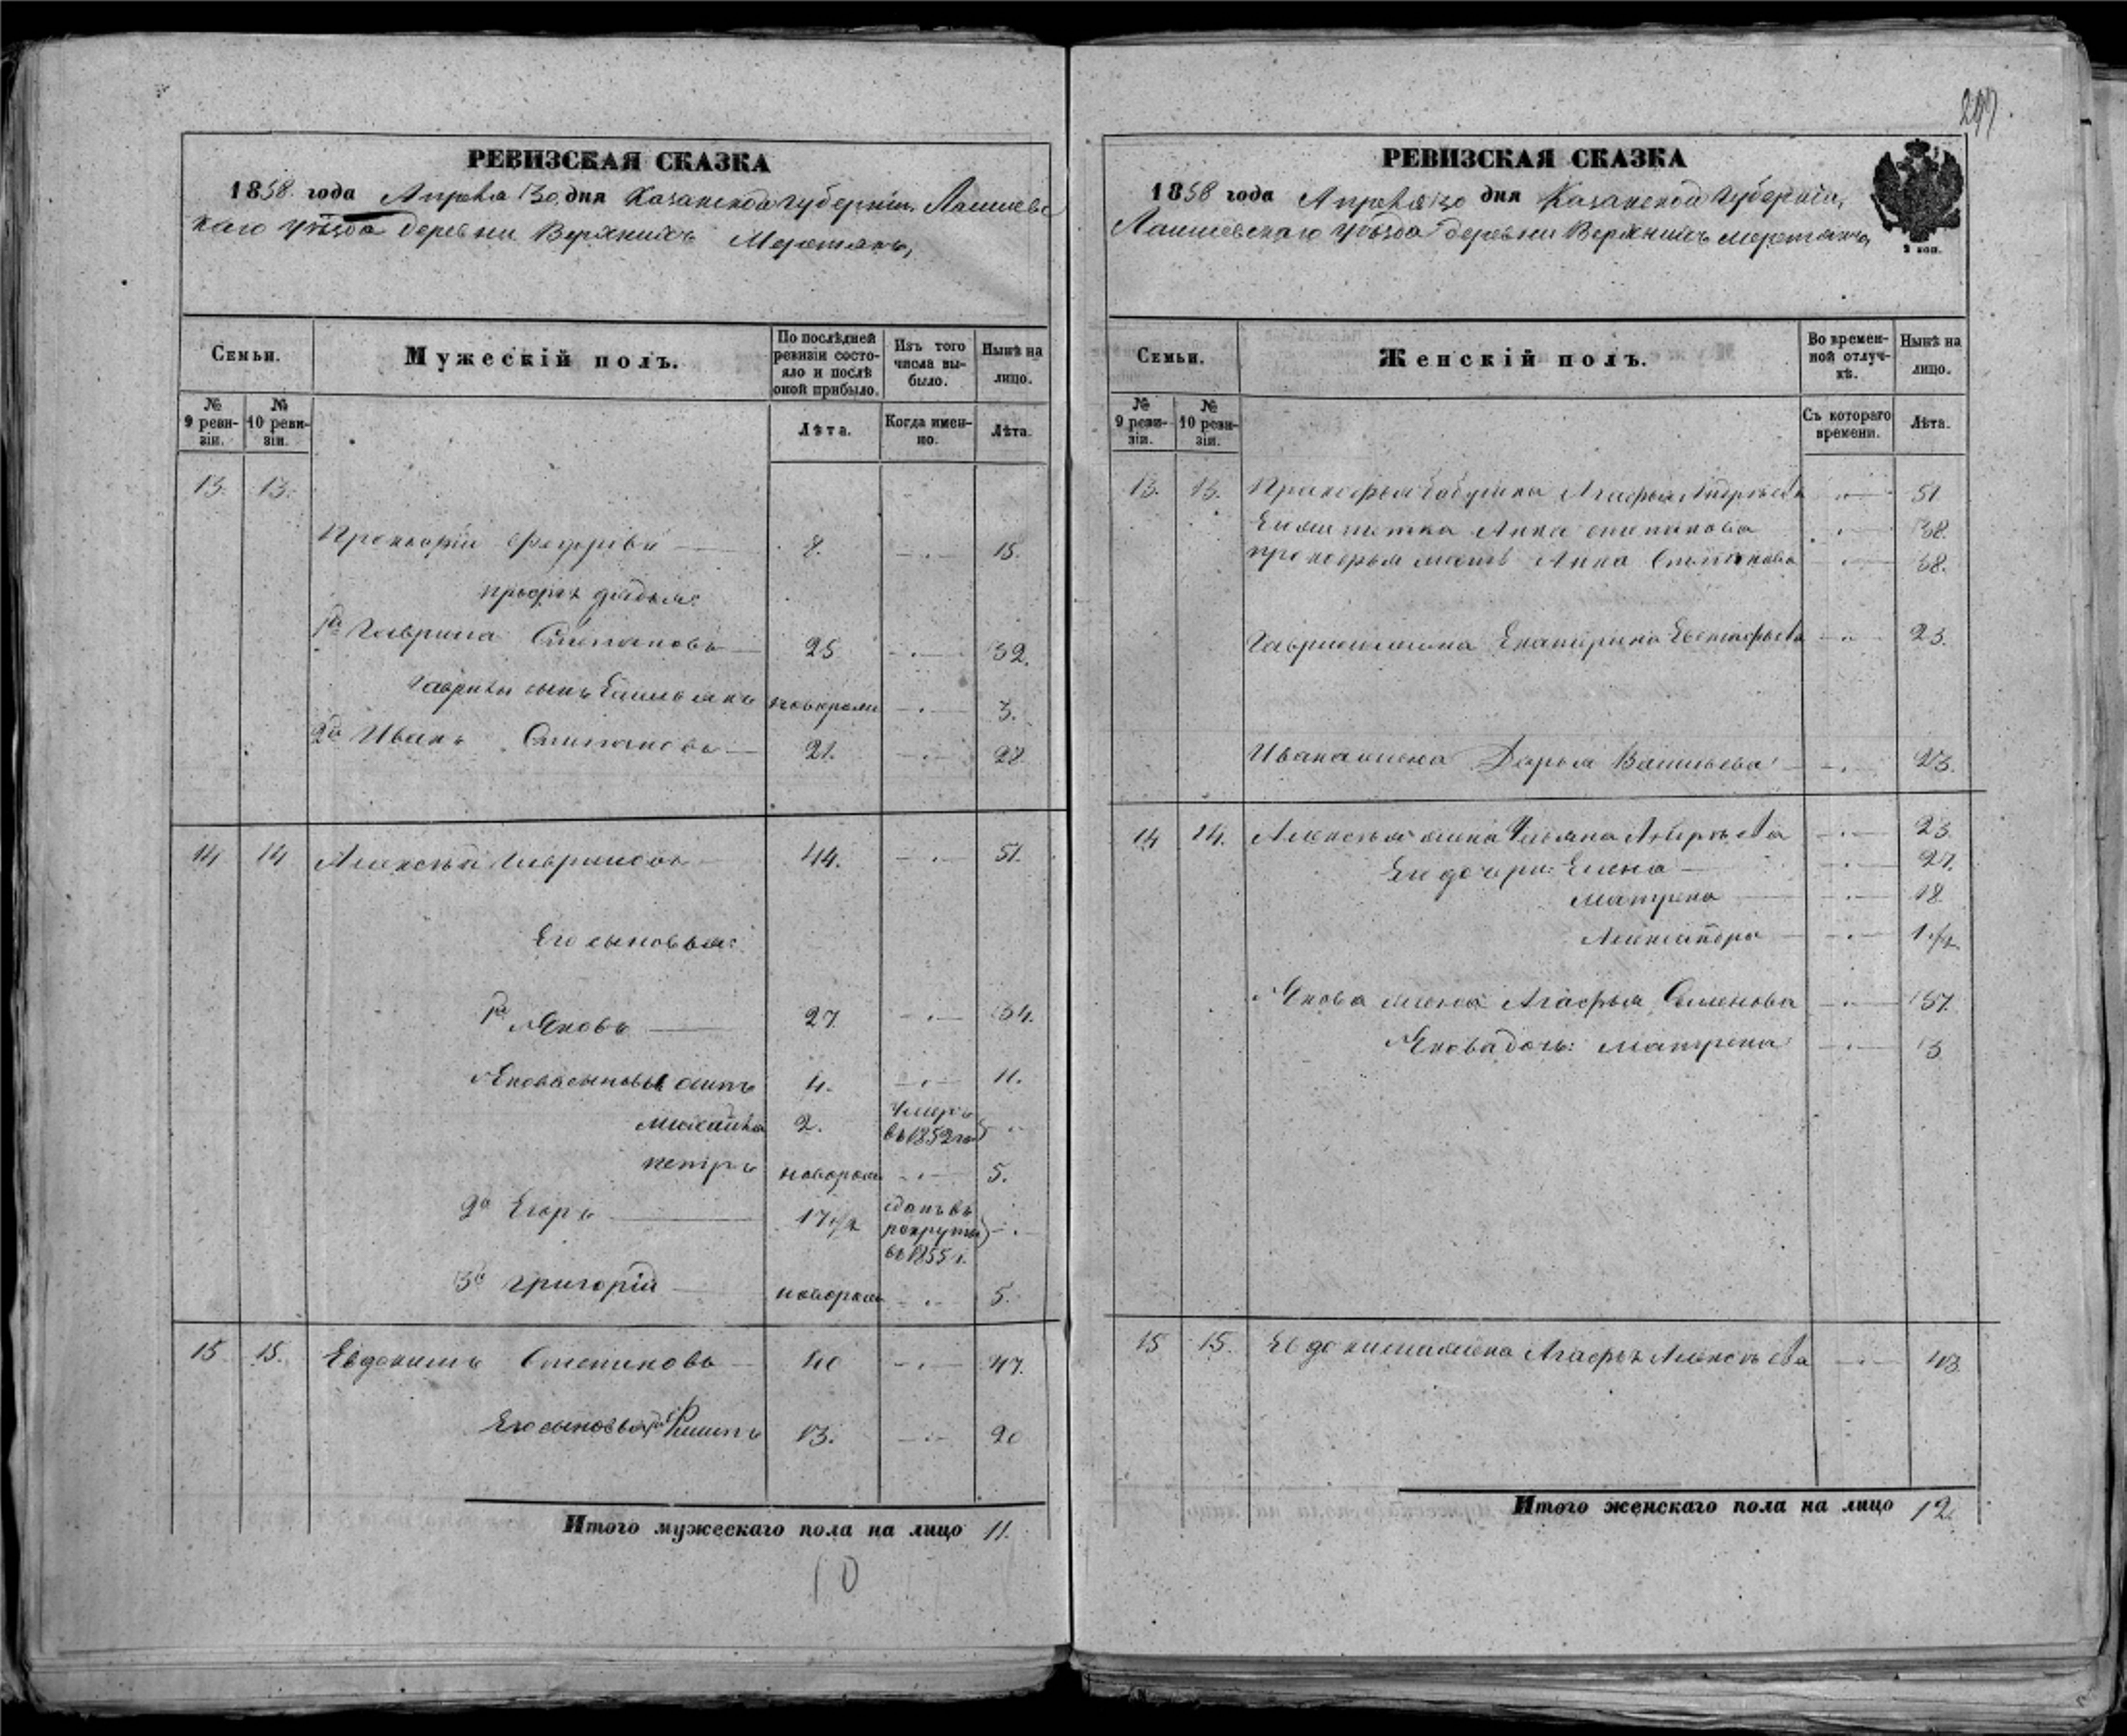 297
РЕВИЗСКАЯ СКАЗКА
1858 года Апреля 30 дня Казанской Губернiи, Лаишевс
каго Уѣзда деревни Верхнихъ
Семьи.
Мужескiй полъ.
По послѣдней ревизiи состояло и послѣ оной прибыло.
Изъ того числа выбыло.
Нынѣ на лицо.
№ 9 ревизiи.
№ 10 ревизiи.
Лѣта.
Когда именно.
Лѣта.
13. 13.
Прокофiй Федоровъ 8. 15.
дядья:
1й Гаврила Степановъ 25 32.
Гаврилы сынъ Емельянъ новорожд 3.
2й Иванъ Степановъ 21. 28
14 14 Алексѣй Гавриловъ 44. 51.
Его сыновья:
1й Яковъ 27 34.
Якова сыновья Осипъ 4. 11.
Михайла 2. Умеръ въ 1852 го
Петръ новорож 5.
2й Егоръ 17 1/2 сданъ въ рекруты въ 1855 г.
3й Григорiй новорож 5.
15 15. Евдокимъ Степановъ 40 47.
Его сыновья 1й Филипъ 13. 20
Итого мужескаго пола на лицо 11.
10
РЕВИЗСКАЯ СКАЗКА
1858 года Апреля 30 дня Казанской Губернiи,
Лаишевскаго Уѣзда деревни Верхнихъ
2 коп.
Семьи.
Женскiй полъ.
Во временной отлучкѣ.
Нынѣ на лицо.
№ 9 ревизiи.
№ 10 ревизiи.
Съ котораго времени.
Лѣта.
13. 13. Прокофья бабушка Агафья Андреева 51
тетка Анна Степанова 38.
Прокофья мать Анна Степанова 38.
Гаврилы жена Екатерина 23.
Ивана жена Дарья Васильева 23.
14 14. Алексѣя жена Ульяна 23
Его дочери: Елена 27.
Матрена 18
Александра 1 1/2
Якова жена Агафья Семенова 37.
Якова дочь: Матрена 3
15 15. Евдокима жена Агафья Алексѣева 43
Итого женскаго пола на лицо 12